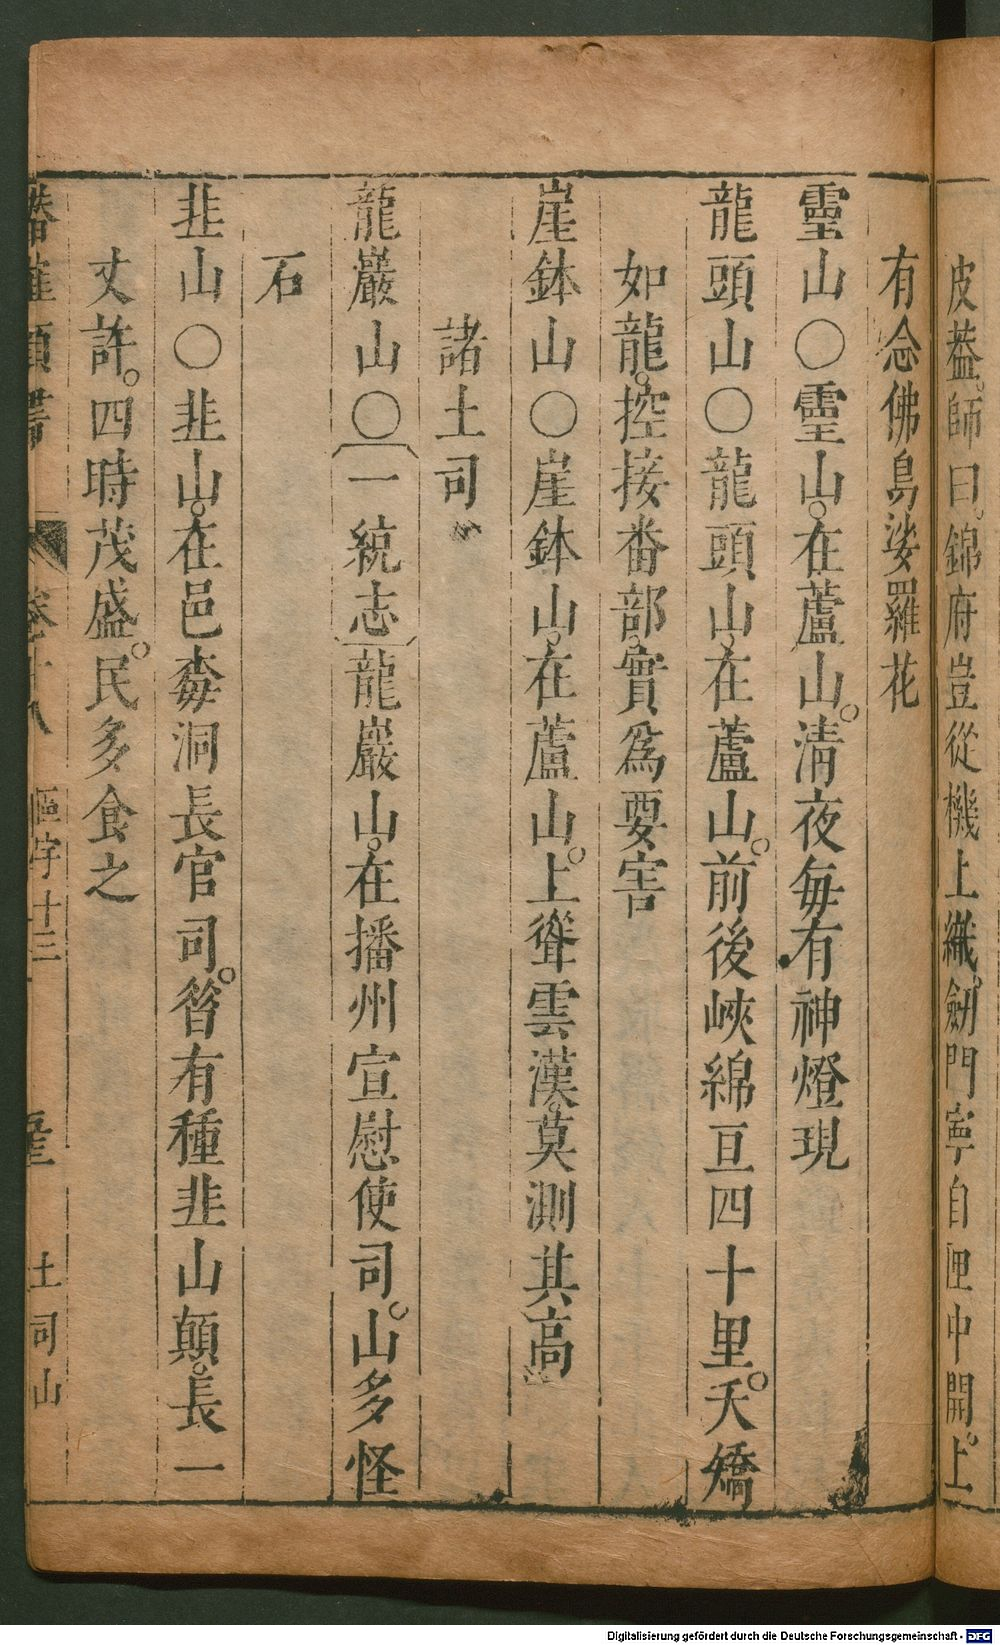 皮葢。師曰。錦府豈從機上織。劒門寧自匣中開。上
有念佛鳥娑羅花
靈山○靈山。在蘆山。清夜每有神燈現
龍頭山○龍頭山。在蘆山。前後峽綿亘四十里。夭矯
如龍。控接番部。實爲要害
崖鉢山○崖鉢山。在蘆山。上聳雲漢。莫測其高
諸土司
龍巖山○〔一統志〕龍巖山。在播州宣慰使司。山多怪
石
韭山○韭山。在邑𣏌洞長官司。昝有種韭山顛。長一
丈許。四時茂盛。民多食之
潛確類書 卷十八 區宇十三 土司山
Digitalisierung gefördert durch die Deutsche Forschungsgemeinschaft - DFG